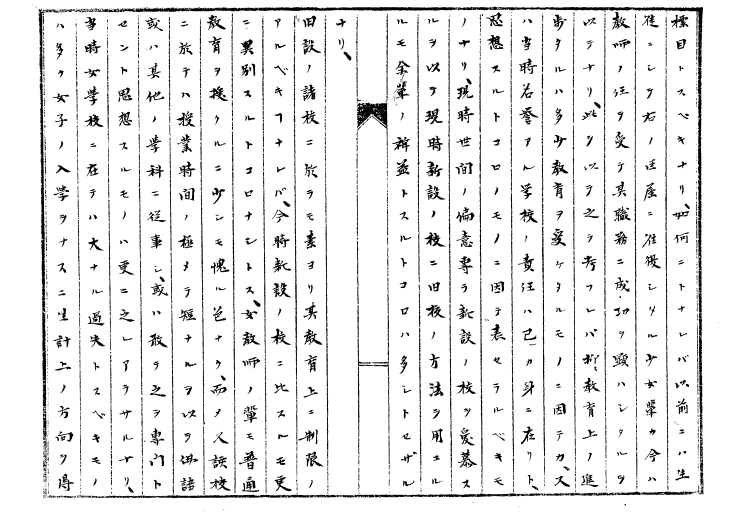 標目トスベキナリ、如何ニトナレバ以前ニハ生
徒ニシテ右ノ区屋ニ往復シタル少女輩ガ今ハ
教師ノ任ヲ受テ其職務ニ成功ヲ顕ハシタルヲ
以テナリ、此ヲ以テ之ヲ考フレバ抑、教育上ノ進
歩タルハ多少教育ヲ受ケタルモノニ因テカ、ス
ハ当時名誉アル学校ノ責任ハ己カ身ニ在リト、
思想スルトコロノモノニ因テ表セラルベキモ
ノナリ、現時世間ノ偏意専ラ新設ノ校ヲ愛慕ス
ルヲ以テ現時新設ノ校ニ旧校ノ方法ヲ用ユル
ルモ余輩ノ裨益トスルトコロハ多シトセザル
ナリ、
旧設ノ諸校ニ於テモ素ヨリ其教育上ニ制限ノ
アルベキコナレバ、今時新設ノ校ニ比スルモ更
ニ異別スルトコロナシトス、女教師ノ輩モ普通
教育ヲ授クルニ少シモ愧ル色ナク、而メ又該校
ニ於テハ授業時間ノ極メテ短ナルヲ以テ佛語
或ハ其他ノ学科ニ従事シ、或ハ散ラ之ヲ専門ト
セント思想スルモノハ更ニ之レアラサルナリ、
当時女学校ニ在テハ大ナル過失トスベキモノ
ハ多ク女子ノ入学ヲナスニ生計上ノ方向ヲ得